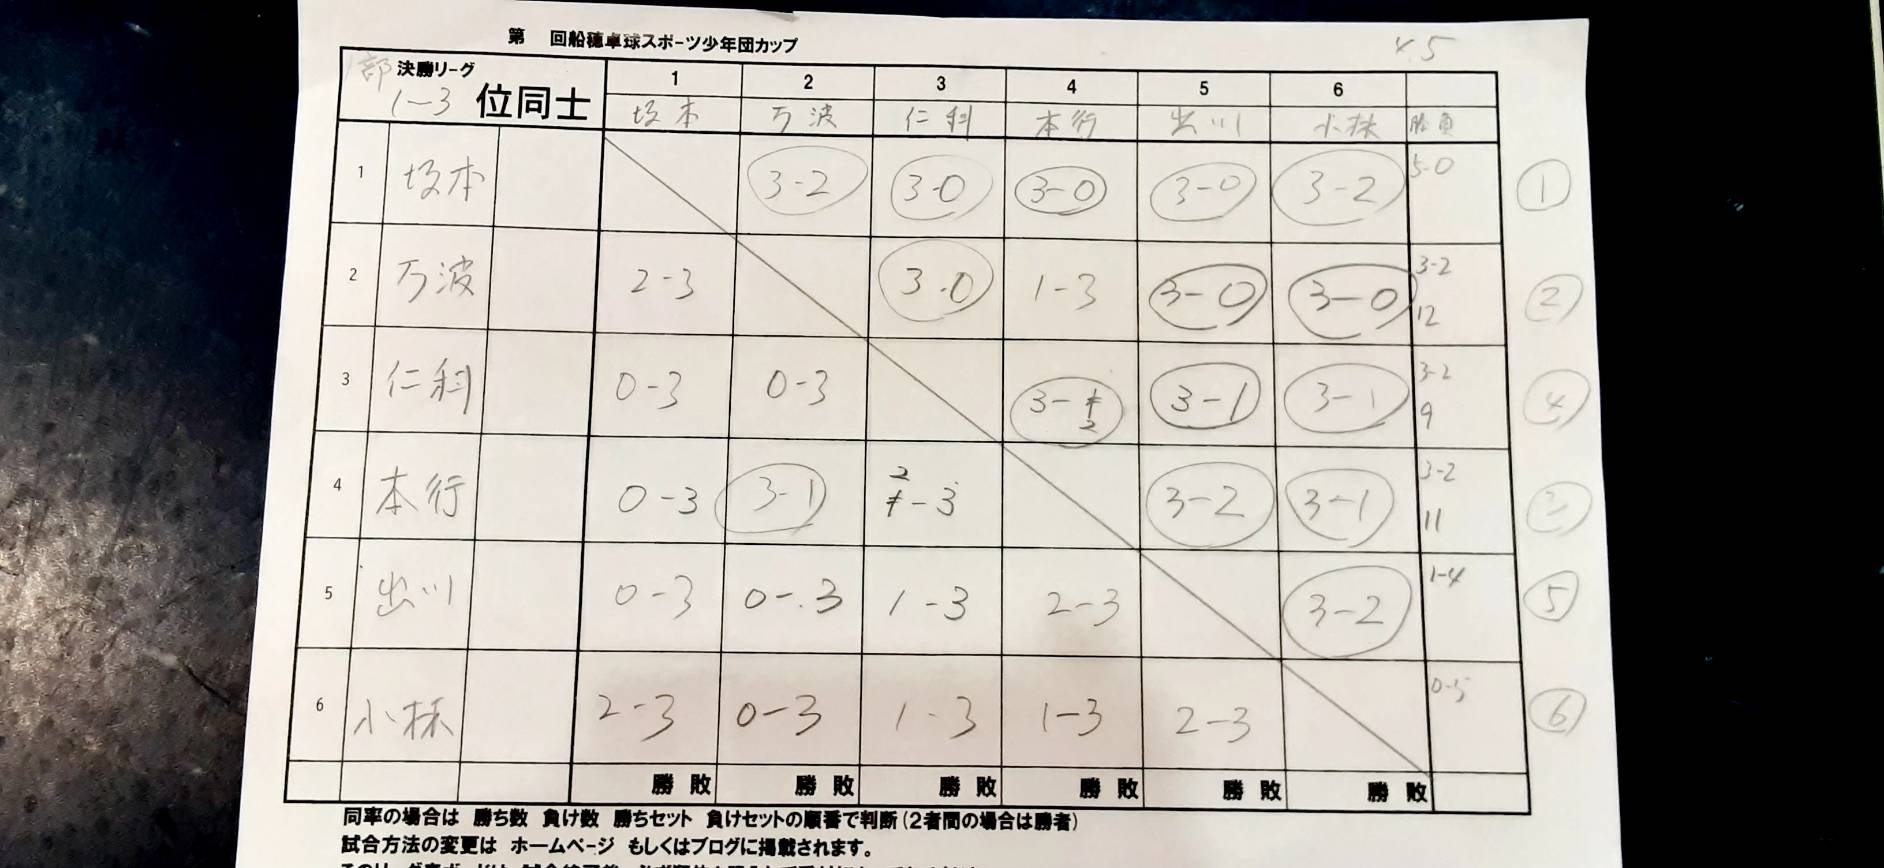 第 回船穂卓球スポーツ少年団カップ
4.5
1部 決勝リーグ
1-3 位同士
1 2 3 4 5 6
坂本 万波 仁科 本行 出川 小林 勝負
1 坂本 3-2 3-0 3-0 3-0 3-2 5-0 ①
2 万波 2-3 3-0 1-3 3-0 3-0 3-2 12 ②
3 仁科 0-3 0-3 3-2 3-1 3-1 3-2 9 ④
4 本行 0-3 3-1 2-3 3-2 3-1 3-2 11 ③
5 出川 0-3 0-3 1-3 2-3 3-2 1-4 ⑤
6 小林 2-3 0-3 1-3 1-3 2-3 0-5 ⑥
勝 敗 勝 敗 勝 敗 勝 敗 勝 敗 勝 敗
同率の場合は 勝ち数 負け数 勝ちセット 負けセットの順番で判断(2者間の場合は勝者)
試合方法の変更は ホームページ もしくはブログに掲載されます。